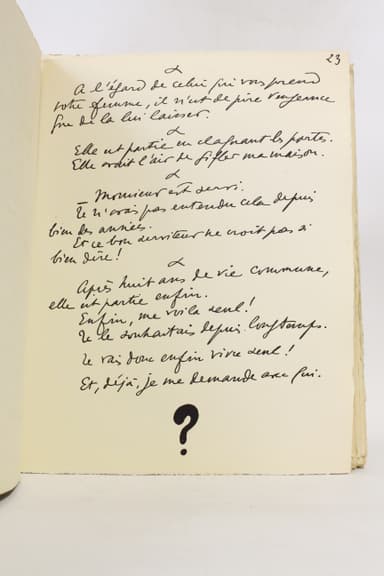 23
À l'égard de celui qui vous prend
votre femme, il n'est de pire vengeance
que de la lui laisser.
Elle est partie en claquant les portes.
Elle avait l'air de gifler ma maison.
— Monsieur est servi.
Je n'avais pas entendu cela depuis
bien des années.
Et ce bon serviteur ne croit pas si
bien dire !
Après huit ans de vie commune,
elle est partie enfin.
Enfin, me voilà seul !
Je le souhaitais depuis longtemps.
Je vais donc enfin vivre seul !
Et, déjà, je me demande avec qui.
?